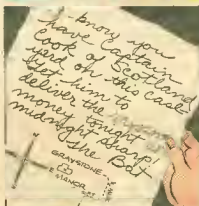 know you
have Captain
Cook of Scotland
yard on this case
Let him to
deliver the
money tonight
midnight sharp!
The Bat
GRAYSTONE
MANOR